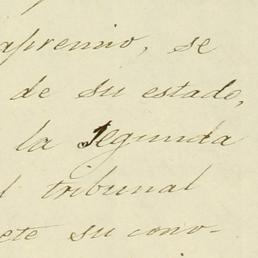 apremio, se
de su estado,
la Segunda
l tribunal
ete su cono-